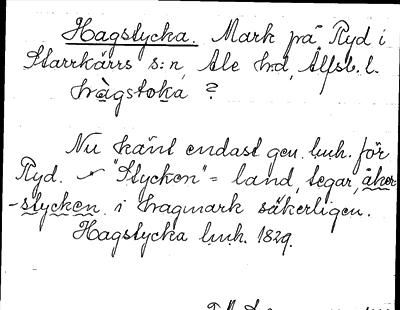 Hagstycka. Mark på Ryd i
Starrkärrs s:n, Ale hd, Älfsb. l.
hàgstoka ?
Nu känt endast gen. luh. för
Ryd. "Stycken" = land, tegar, åker-
-stycken i hagmark säkerligen.
Hagstycka luh. 1829.